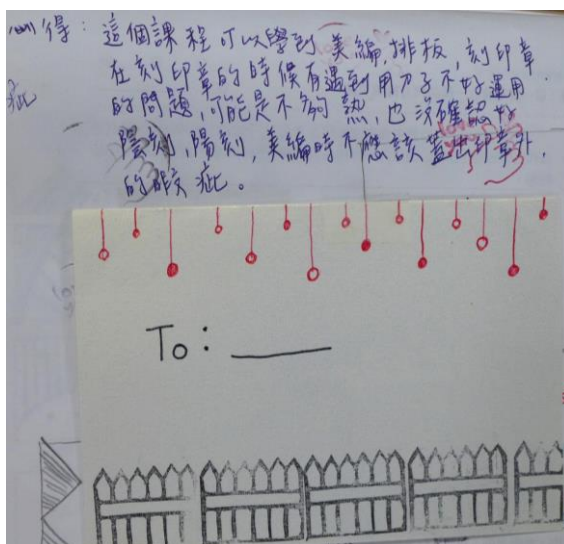 心得：這個課程可以學到美編,排板,刻印章.
在刻印章的時候有遇到用刀子不好運用
的問題,可能是不夠熟,也沒確認好
陰刻,陽刻,美編時不應該蓋出印章外,
的瑕疵。
疵
To: